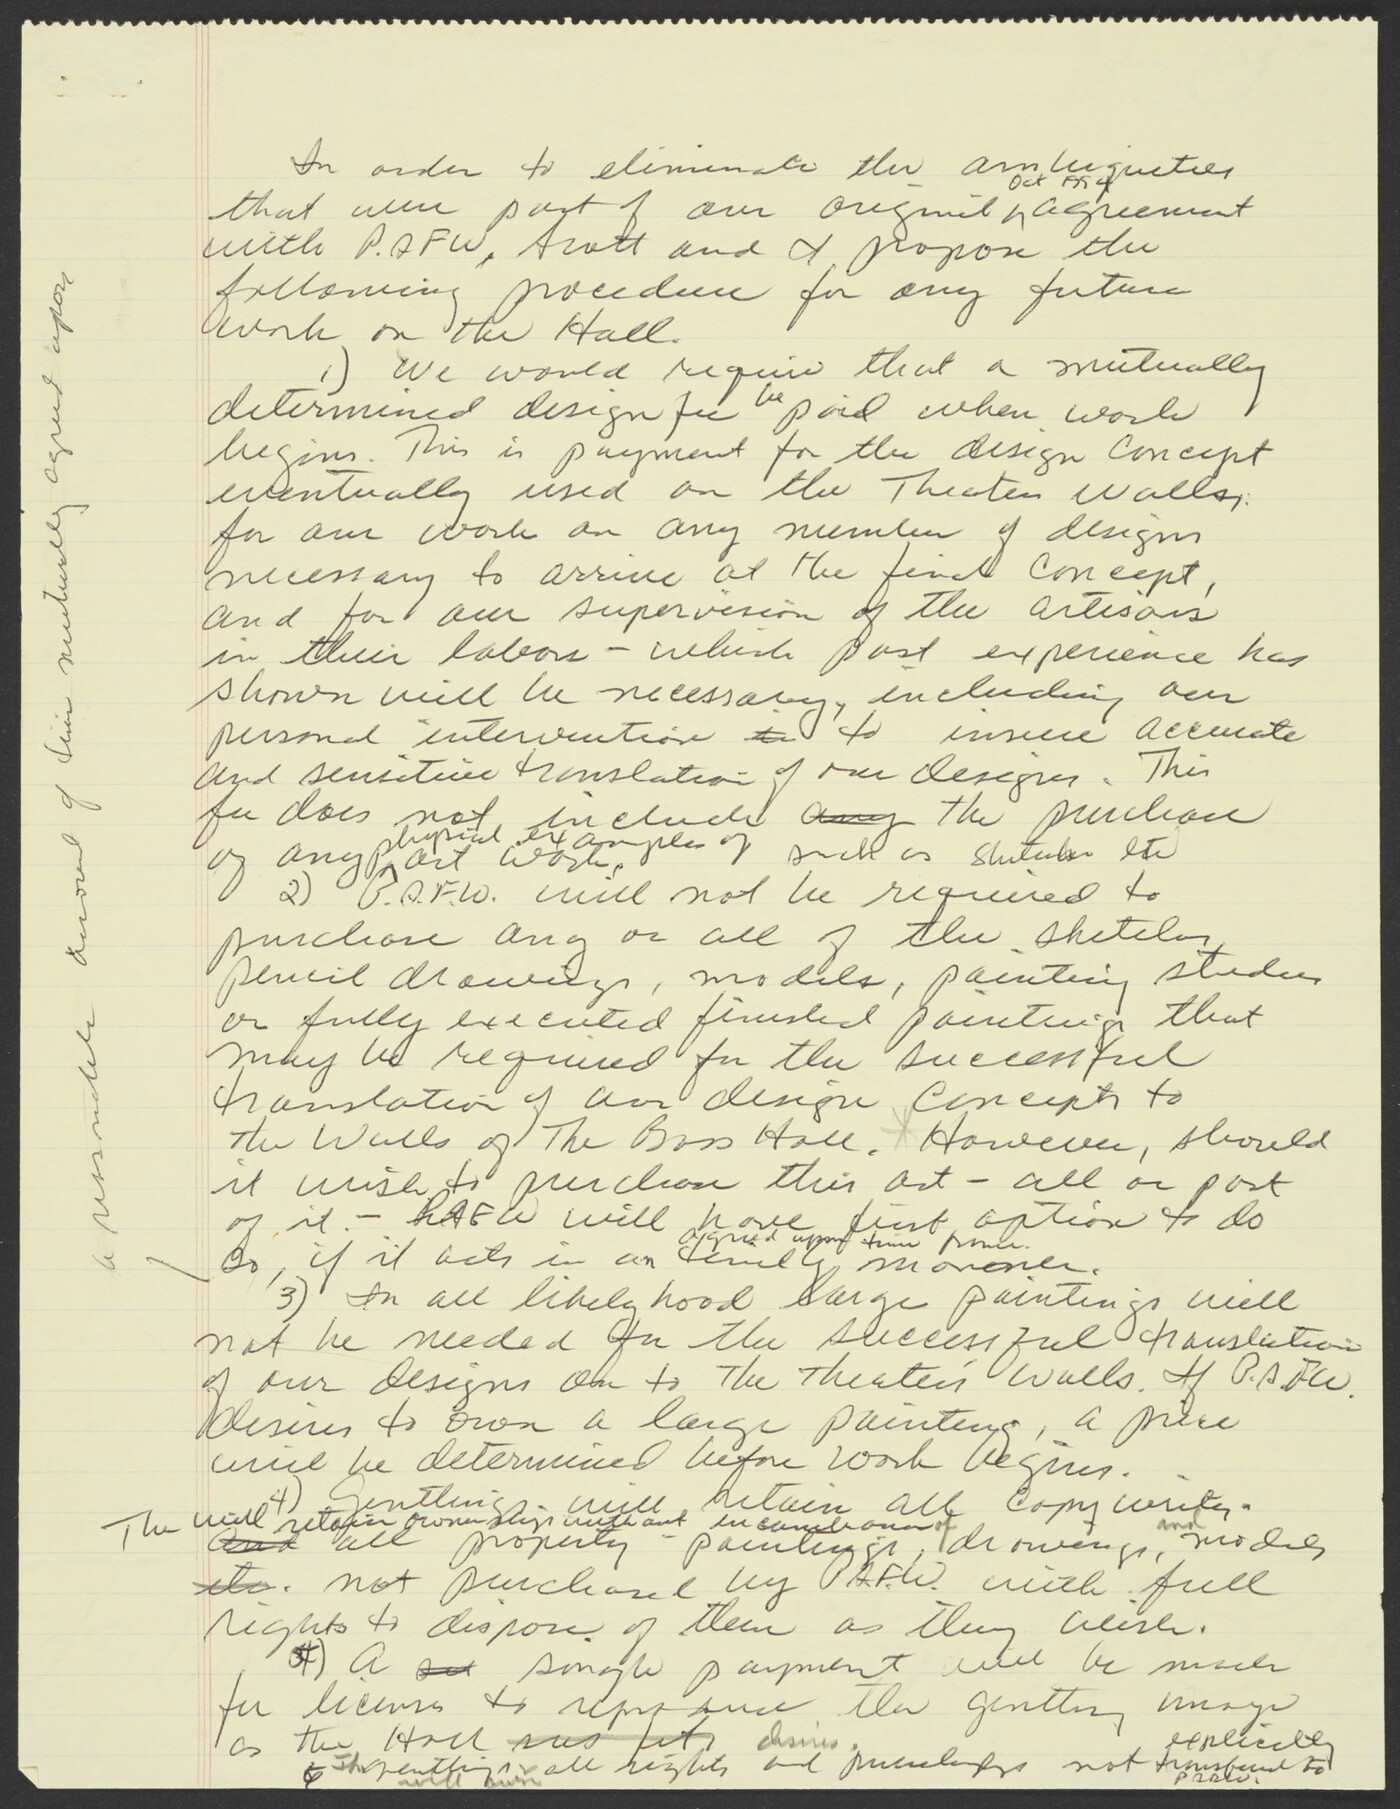 In order to eliminate the ambiguities
that were part of our original Oct agreement
with P.A.F.W., Scott and I propose the
following procedure for any future
work on the Hall.
1) We would require that a mutually
determined design fee be paid when work
begins. This is payment for the design concept
eventually used on the Theater walls,
for our work on any number of designs
necessary to arrive at the final concept,
and for our supervision of the artisans
in their labors - which past experience has
shown will be necessary, including our
personal intervention to to insure accurate
and sensitive translation of our designs. This
fee does not include any the purchase
of any physical examples of art work, such as sketches etc
2) P.A.F.W. will not be required to
purchase any or all of the sketches,
pencil drawings, models, painting studies
or fully executed finished paintings that
may be required for the successful
translation of our design concepts to
the walls of The Bass Hall. However, should
it wish to purchase this art - all or part
of it - PAFW will have first option to do
so, if it acts in an agreed upon time frame. timely manner.
a reasonable amount of time mutually agreed upon
3) In all likelyhood large paintings will
not be needed for the successful translation
of our designs on to the theater's walls. If P.A.F.W.
desires to own a large painting, a price
will be determined before work begins.
4) Gentlings will retain all copywrites.
The will retain ownership without encumbrance of
and all property - paintings, drawings, and models
etc. not purchased by PAFW. with full
rights to dispose of them as they wish.
5) A single payment will be made
for license to reproduce the gentling image
as the Hall sees fit desires.
6 The gentlings will own all rights and privileges not explicitly transfered to
PAFW.